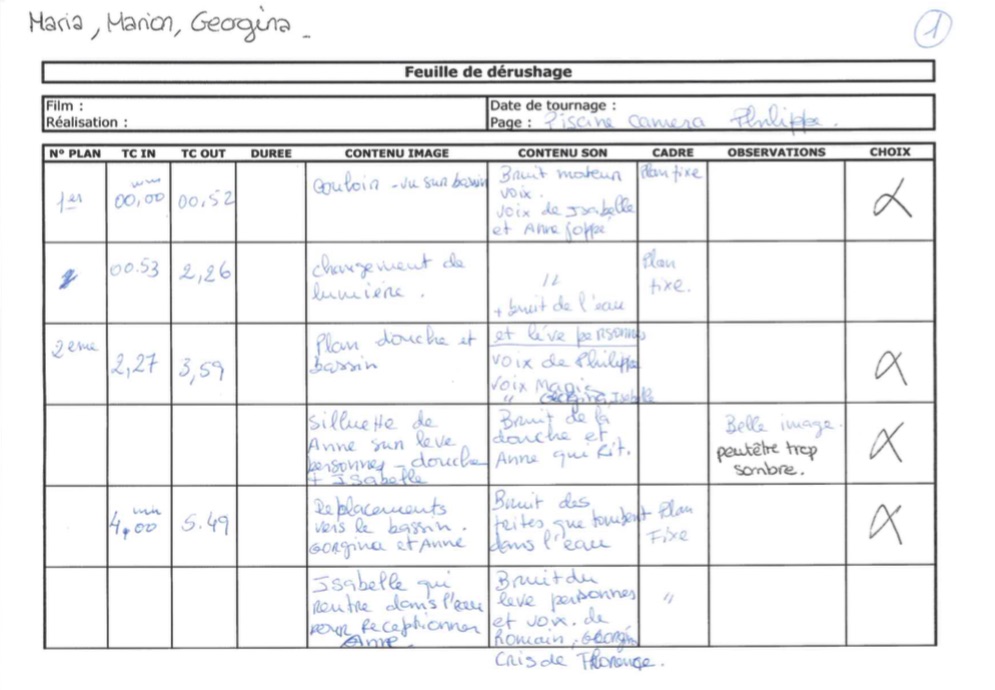 Maria, Marion, Georgina
1
Feuille de dérushage
Film :
Réalisation :
Date de tournage :
Page : Piscine camera Philippe.
N° PLAN TC IN TC OUT DUREE CONTENU IMAGE CONTENU SON CADRE OBSERVATIONS CHOIX
1er
mn
00,00
00,52
Couloir - vu sur bassin
Bruit moteur
voix.
voix de Isabelle
et Anne
Plan fixe
α
00.53
2,26
changement de
lumière.
//
+ bruit de l'eau
et lève personnes
Plan
fixe.
2ème
2,27
3,59
Plan douche et
bassin
voix de Philippe
voix Marie
" Georgina, Isabelle
α
Silluette de
Anne sur leve
personnes - douche
+ Isabelle
Bruit de la
douche et
Anne qui Rit.
Belle image.
peutêtre trop
sombre.
α
mn
4,00
5.49
Deplacements
vers le bassin.
GORgina et Anne
Bruit des
que tombent
dans l'eau
Plan
Fixe
α
Isabelle qui
Rentre dans l'eau
pour Receptionner
Anne.
Bruit du
leve personnes
et voix de
Romain, Georgina
Cris de Florence.
"